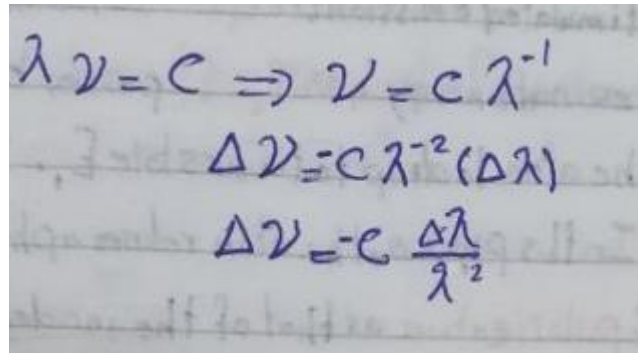 λν = c ⇒ ν = cλ⁻¹
Δν = -cλ⁻²(Δλ)
Δν = -c Δλ/λ²